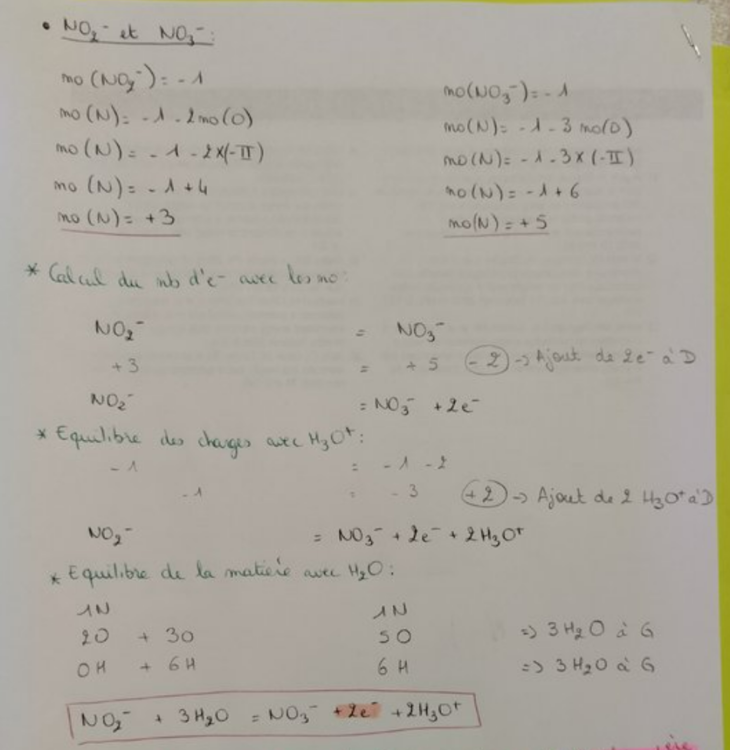 • NO₂⁻ et NO₃⁻ :
mo (NO₂⁻) = - 1
mo (N) = - 1 - 2 mo (O)
mo (N) = - 1 - 2 x (-II)
mo (N) = - 1 + 4
mo (N) = + 3
mo (NO₃⁻) = - 1
mo (N) = - 1 - 3 mo (O)
mo (N) = - 1 - 3 x (-II)
mo (N) = - 1 + 6
mo (N) = + 5
* Calcul du nb d'e- avec les mo :
NO₂⁻ = NO₃⁻
+ 3 = + 5 (- 2) -> Ajout de 2e⁻ à D
NO₂⁻ = NO₃⁻ + 2e⁻
* Equilibre des charges avec H₃O⁺ :
- 1 = - 1 - 2
- 1 = - 3 (+ 2) -> Ajout de 2 H₃O⁺ à D
NO₂⁻ = NO₃⁻ + 2e⁻ + 2H₃O⁺
* Equilibre de la matière avec H₂O :
1N 1N
2O + 3O 5O => 3H₂O à G
OH + 6H 6H => 3H₂O à G
NO₂⁻ + 3H₂O = NO₃⁻ + 2e⁻ + 2H₃O⁺